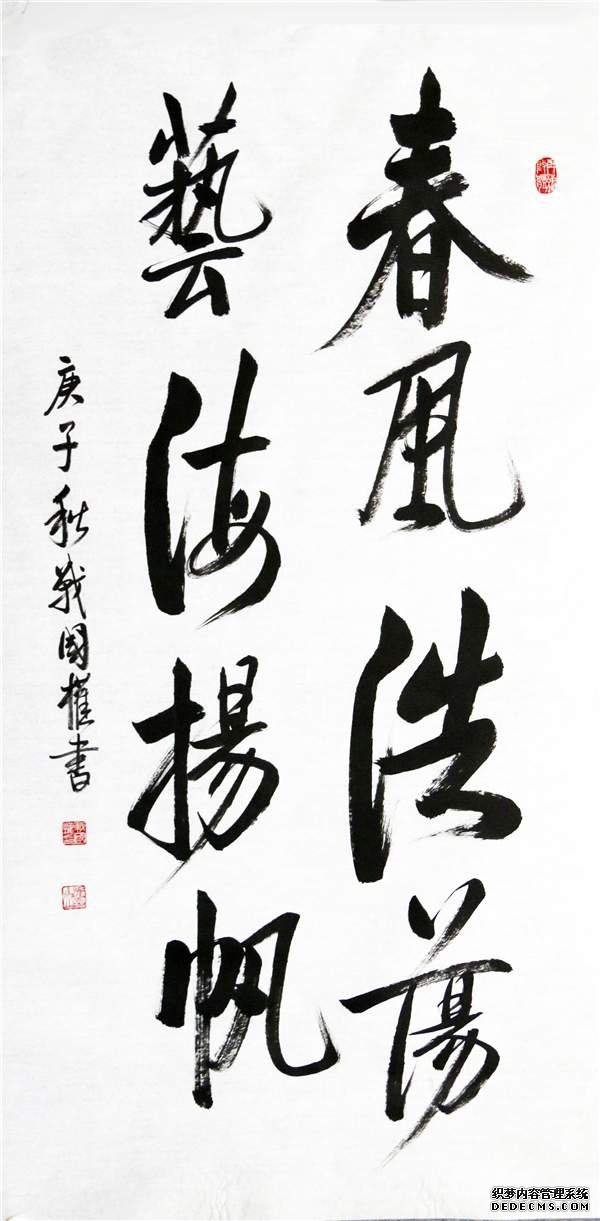 春風浩蕩
藝海揚帆
庚子秋戰國權書
织梦内容管理系统
DEDECMS.COM